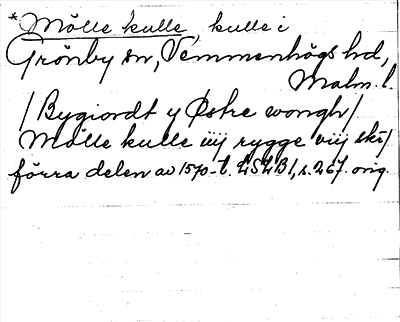 *Mölle kulle, kulle i
Grönby sn, Vemmenhögs hd,
Malm. l.
/Bygiordt y Östre wongh/
Mölle kulle iiij rygge viij sk/
förra delen av 1570-t. LSLB 1, s. 267. orig.